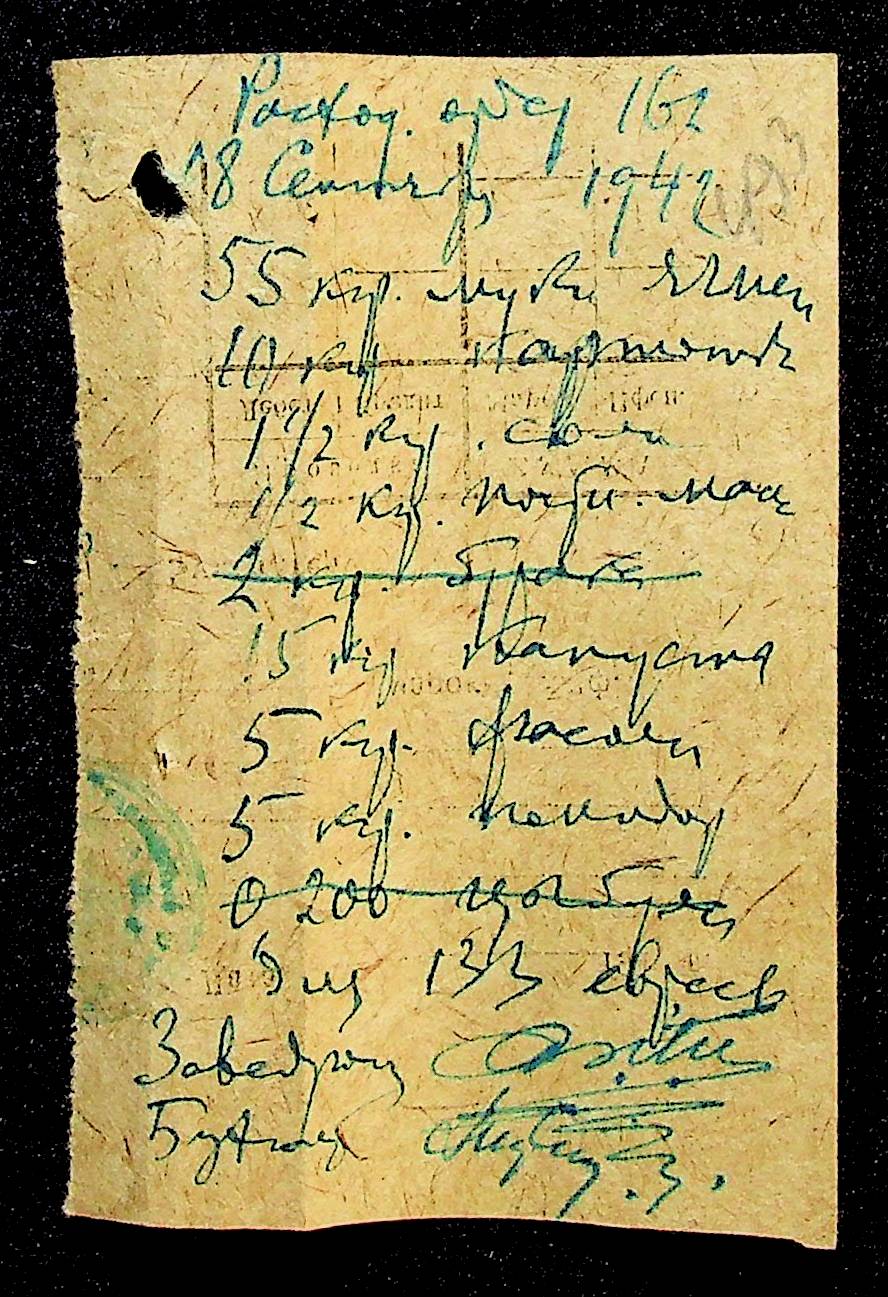 Расход. ордер 162
18 Сентября 1942
55 кгр. муки ячмен
10 кгр картошк
1 1/2 кгр. соли
1/2 кгр. посн. масл
2 кгр. бурак
15 кгр капуста
5 кгр. фасоли
5 кгр. помидор
0 200 цыбули
Для 133 евреев
Заведующ
Бухгалт